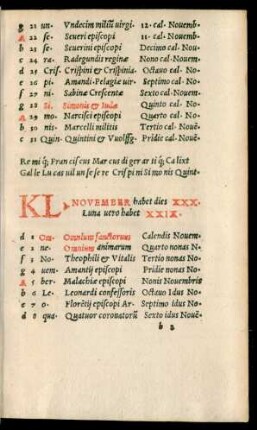 g 21 un. Vndecim miliũ uirgi. 12. cal. Nouemb.
A 22 se. Seueri episcopi 11. cal. Nouemb.
b 23 se. Seuerini episcopi Decimo cal. Nou.
c 24 ra. Radegundis reginæ Nono cal. Nouem.
d 25 Cris. Crispini & Crispinia. Octauo cal. No.
e 26 pi. Amandi Pelagiæ uir. Septimo cal. No.
f 27 ni. Sabinæ Crescentiæ Sexto cal. Nouem.
g 28 Si. Simonis & Iudæ Quinto cal. No.
A 29 mo. Narcisci episcopi Quarto cal. No.
b 30 nis. Marcelli militis Tertio cal. Nouē.
c 31 Quin. Quintini & Vuolffg. Pridie cal. Nouē.
Re mi q; Fran cis cus Mar cus di ger ar si q; Ca lixt
Gal le Lu cas uil un se se re Cris pi ni Si mo nis Quint.
KL NOVEMBER habet dies XXX.
Luna uero habet XXIX.
d 1 Om. Omnium sanctorum Calendis Nouem.
e 2 ne. Omnium animarum Quarto nonas N.
f 3 No. Theophili & Vitalis Tertio nonas No.
g 4 uem. Amantij episcopi Pridie nonas No.
A 5 ber. Malachiæ episcopi Nonis Nouembris
b 6 Le. Leonardi confessoris Octauo Idus No.
c 7 o. Florētij episcopi Ar. Septimo idus No.
d 8 qua. Quatuor coronatorũ Sexto idus Nouē.
b 2